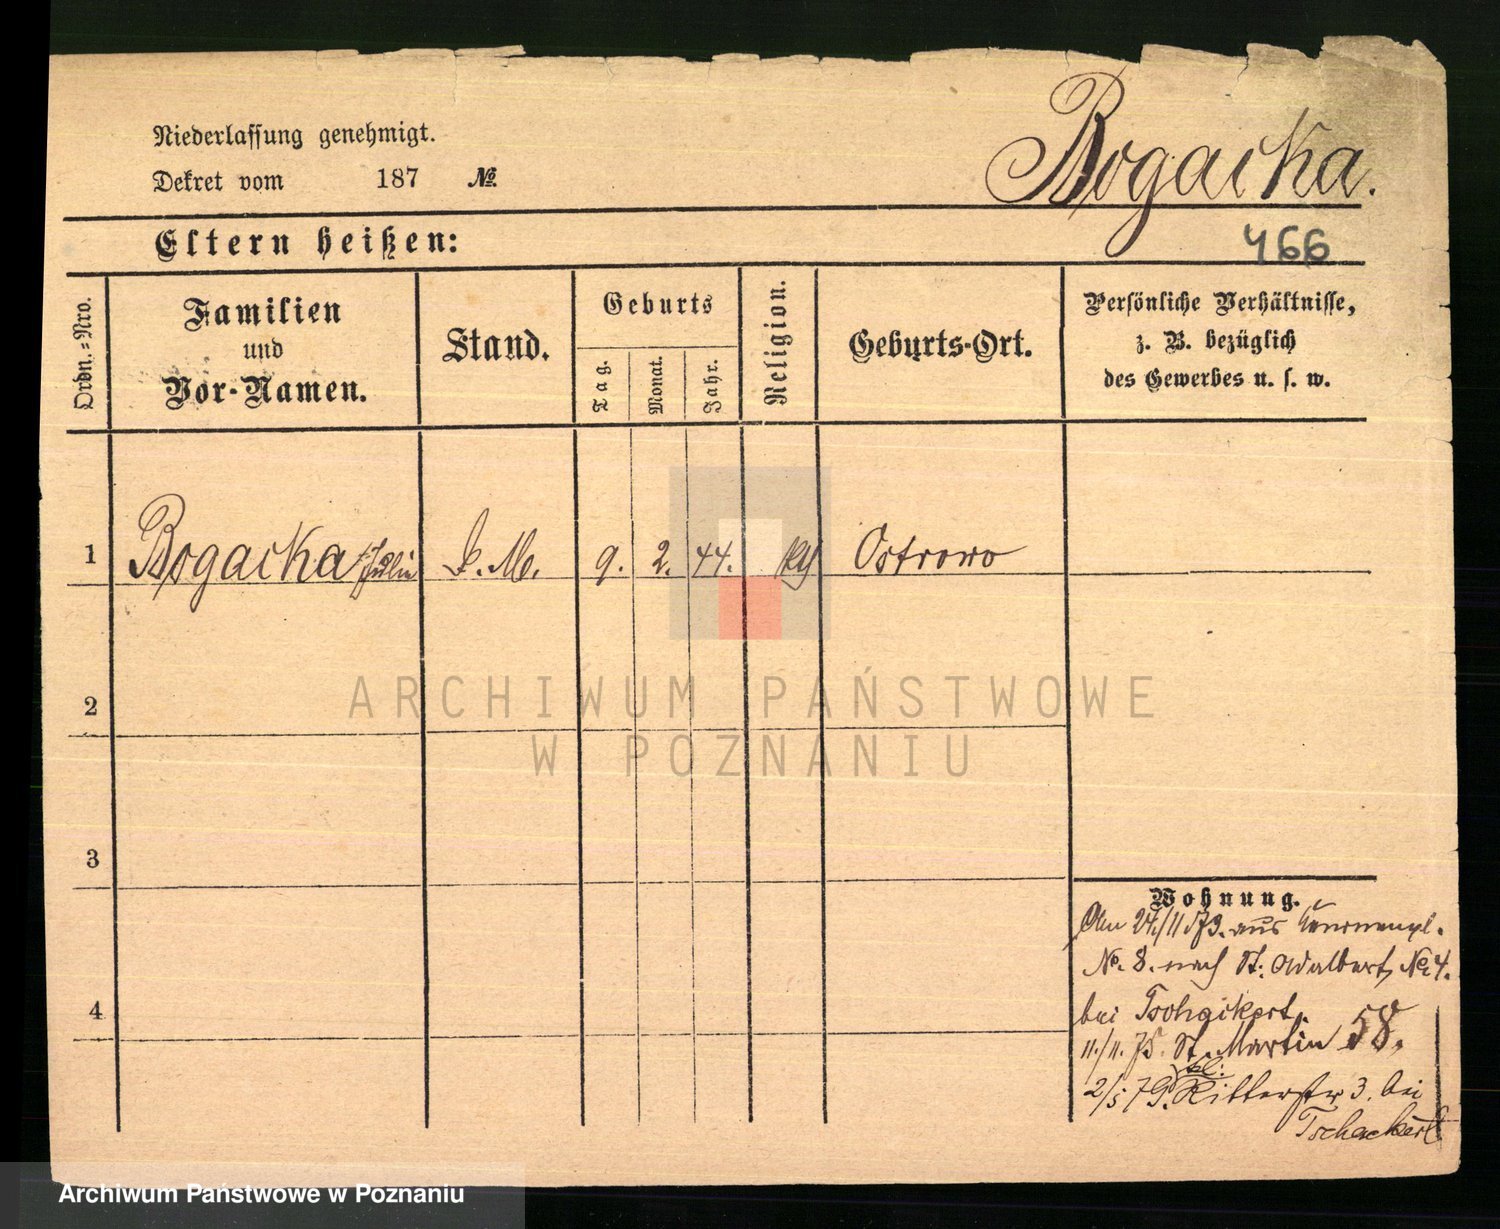 Niederlassung genehmigt.
Dekret vom 187 №.
Bogacka.
466
Eltern heißen:
Ordn.-Nro.
Familien
und
Vor-Namen.
Stand.
Geburts
Tag.
Monat.
Jahr.
Religion.
Geburts-Ort.
Persönliche Verhältnisse,
z. B. bezüglich
des Gewerbes u. s. w.
1 Bogacka Julia D. M. 9. 2. 44. Ostrowo
2
3
4
Wohnung.
Am 24/11 73. aus
No. 8. nach St. Adalbert No 4.
bei
11/11. 75. St. Martin 58.
kl:
2/5 79. Ritterstr 3. bei
Tschackert
ARCHIWUM PAŃSTWOWE
W POZNANIU
Archiwum Państwowe w Poznaniu